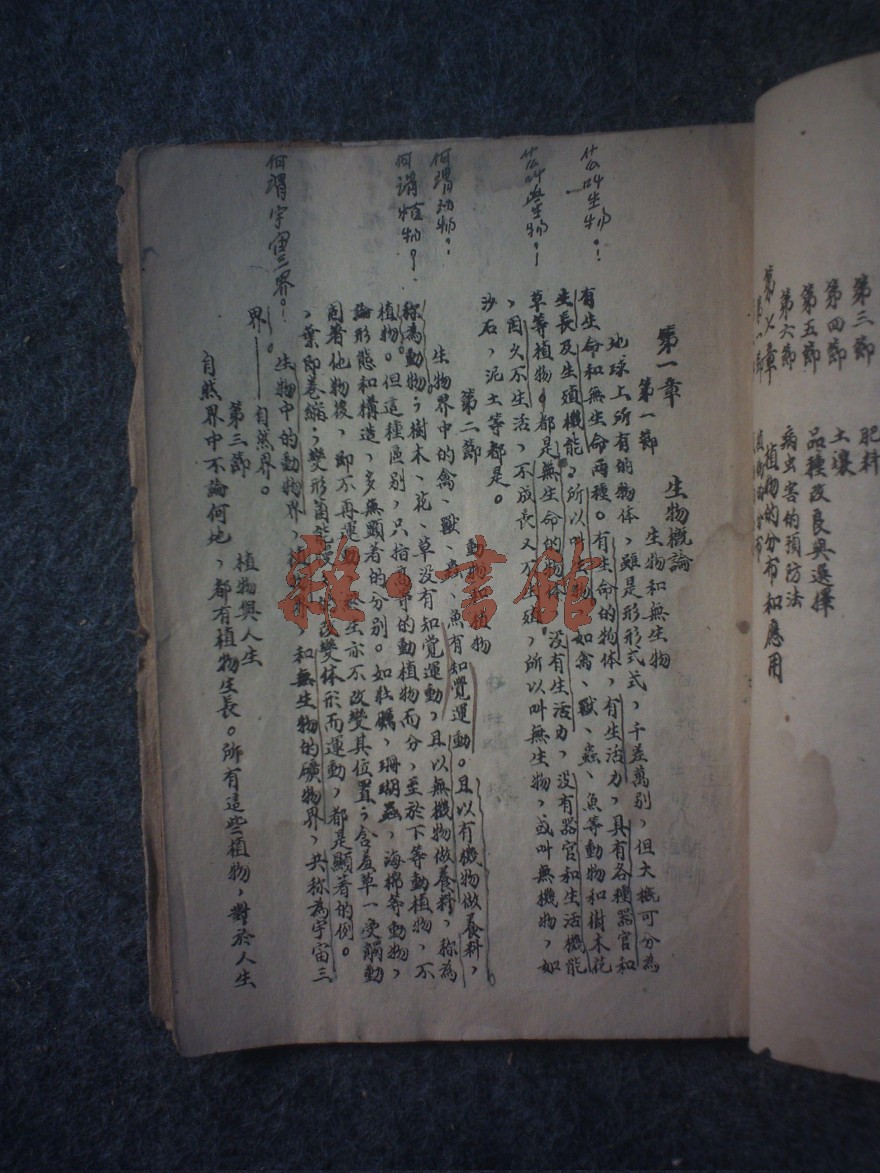 第三節　肥料
第四節　土壤
第五節　品種改良與選擇
第六節　病虫害的預防法
第七章　植物的分布和應用
第一章　生物概論
第一節　生物和無生物
地球上所有的物体，雖是形形式式，千差萬別，但大概可分為
有生命和無生命兩種。有生命的物体，有生活力，具有各種器官和
生長及生殖機能，所以叫生物，如禽、獸、蟲、魚等動物和樹木花
草等植物，都是無生命的物体，没有生活力，没有器官和生活機能
，因久不生活，不成長又不生殖，所以叫無生物，或叫無機物，如
沙石，泥土等都是。
第二節　動物和植物
生物界中的禽、獸、蟲、魚有知覺運動。且以有機物做養料，
称為動物；樹木、花、草没有知覺運動，且以無機物做養料，称為
植物。但這種區别，只指高等的動植物而分，至於下等動植物，不
論形態和構造，多無顯著的分别。如牡蠣，珊瑚蟲，海棉等動物，
固著他物後，即不再運動，終生亦不改變其位置；含羞草一受觸動
，葉即卷縮；變形菌能 改變体形而運動，都是顯著的例。
生物中的動物界，植物界，和無生物的礦物界，共称為宇宙三
界。——自然界。
第三節　植物與人生
自然界中不論何地，都有植物生長。所有這些植物，對於人生
什么叫生物？
什么叫無生物？
何謂動物？
何謂植物？
何謂宇宙三界？
雅·書館